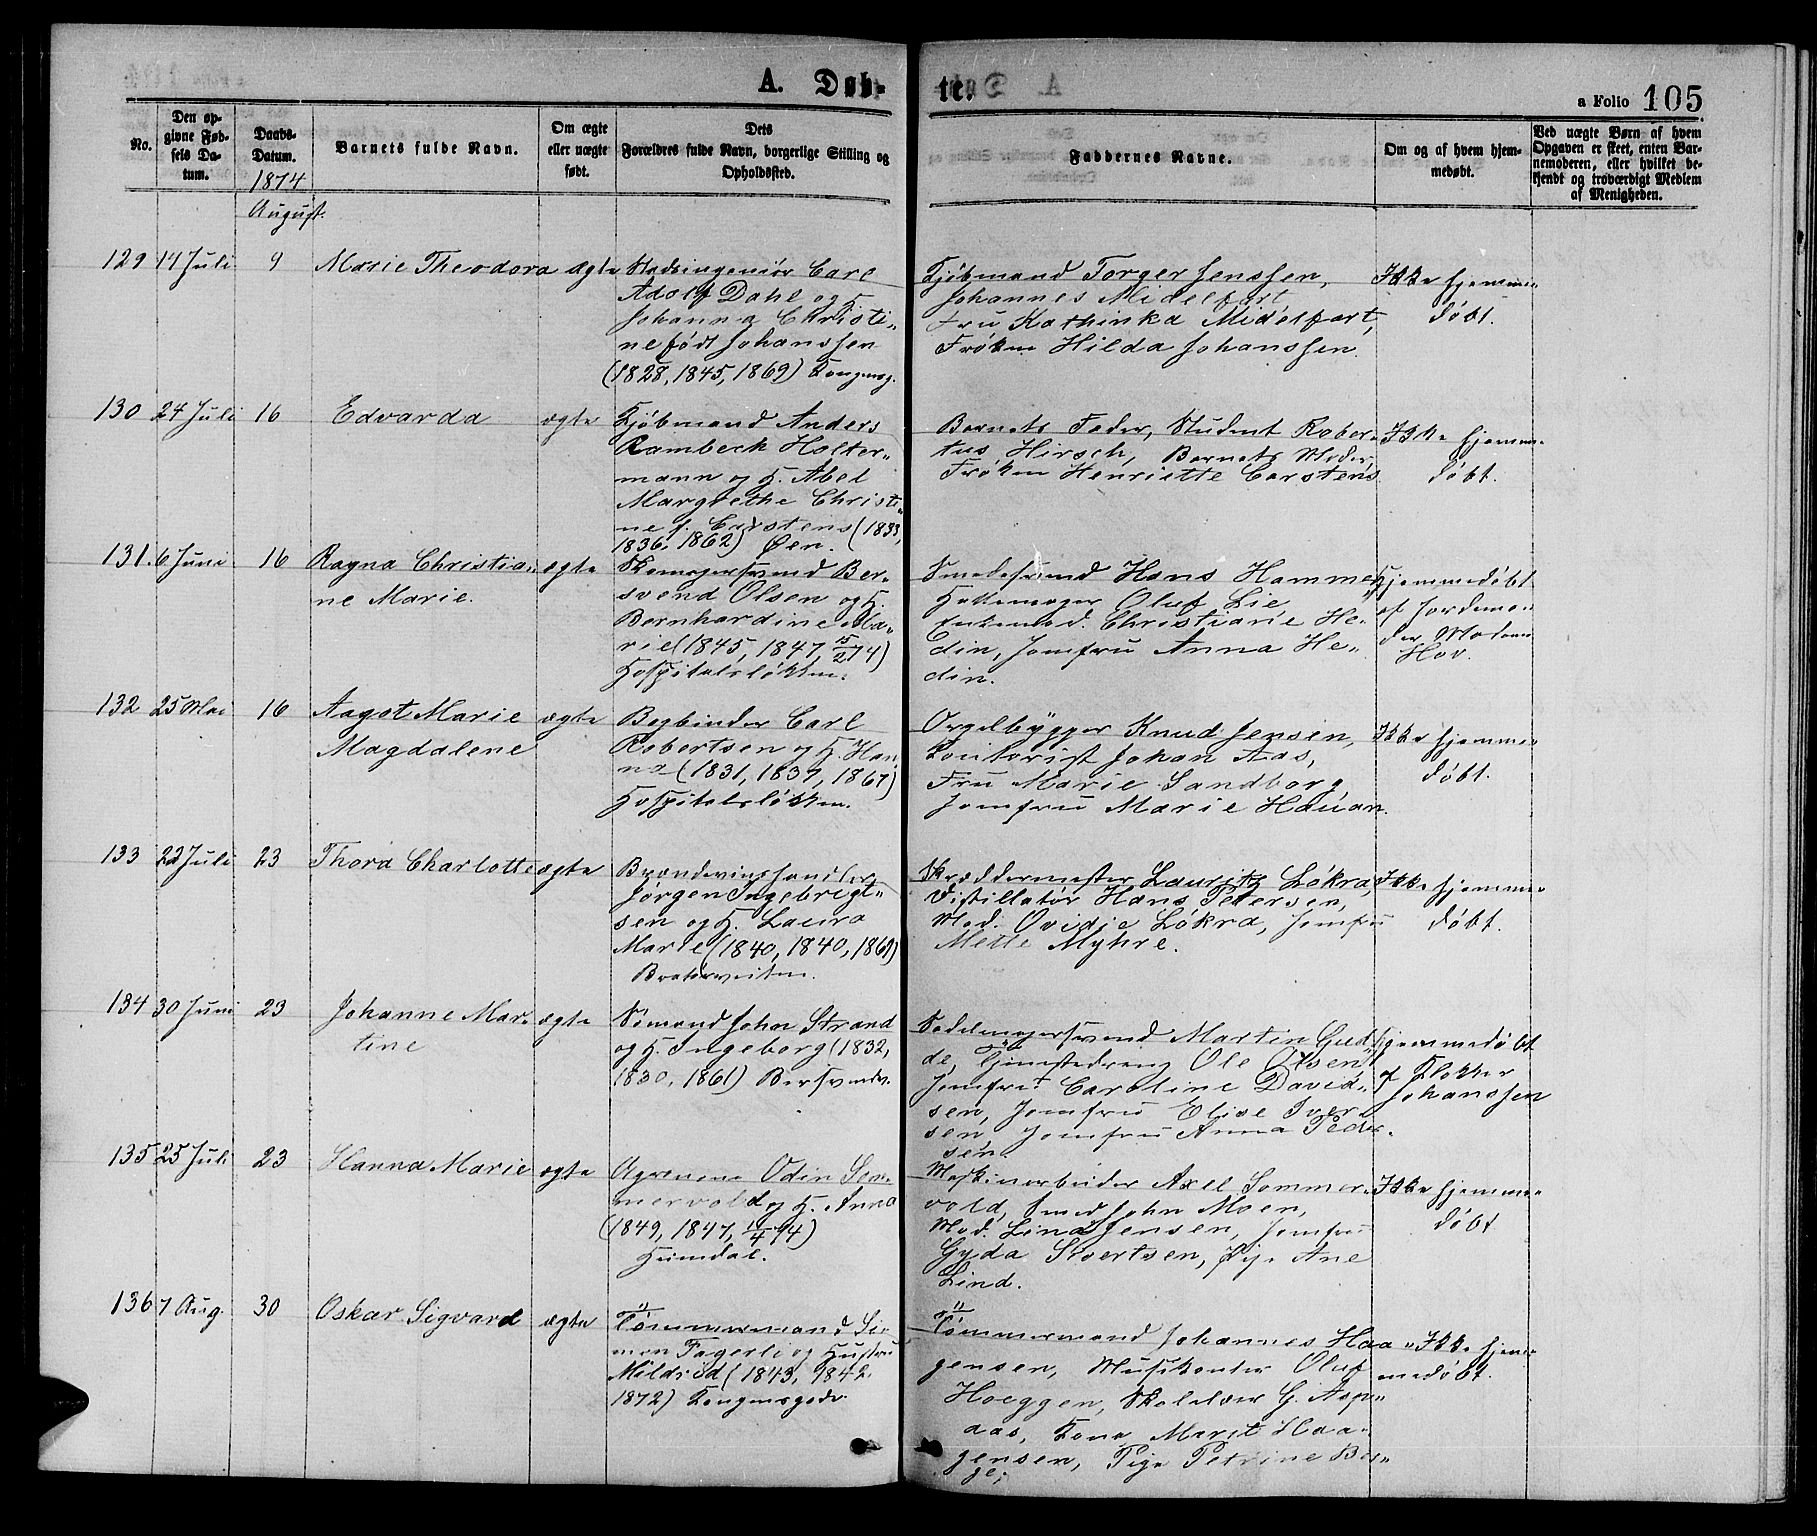 A. Døb-
te.
a Folio 105
No.
Den op-
givne Fød-
sels Da-
tum.
Daabs-
Datum.
1874
Barnets fulde Navn.
Om ægte
eller uægte
født.
Dets
Forældres fulde Navn, borgerlige Stilling og
Opholdssted.
Faddernes Navne.
Om og af hvem hjem-
medøbt.
Ved uægte Børn af hvem
Opgaven er skeet, enten Bar-
nemoderen, eller hvilket be-
kjendt og troværdigt Medlem
af Menigheden.
August.
129 14 Juli 9 Marie Theodora ægte
Stadsingeniör Carl
Adolf Dahl og H.
Johanna Christi-
ne född Johanssen
(1828, 1845, 1869) Kongensg.
Kjöbmand Torger Jenssen,
Johannes Midelfart,
Fru Kathinka Midelfart,
Fröken Hilda Johanssen.
Ikke hjemme-
döbt.
130 24 Juli 16 Edvarda ægte
Kjöbmand Anders
Rambeck Holter-
mann og H. Abel
Margrethe Christi-
ne f. Carstens (1833,
1836, 1862) Øen.
Barnets Fader, Student Rober-
tus Hirsch, Barnets Moder,
Fröken Henriette Carstens
Ikke hjemme-
döbt.
131. 6 Juni 16 Ragna Christia-
ne Marie. ægte
Skomagersvend Ber-
svend Olsen og H.
Bernhardine Ma-
rie (1845, 1847, 15/2 74)
Hospitalslökken.
Smedesvend Hans Hammer,
Hattemager Oluf Lie,
Enkemad. Christiane He-
din, Jomfru Anna He-
din.
Hjemmedöbt
af Jordemo-
der Madam
Hov.
132 25 Mai 16 Aagot Marie
Magdalene ægte
Bogbinder Carl
Robertsen og H. Han-
na (1831, 1837, 1867)
Hospitalslökken.
Orgelbygger Knud Jensen,
Kontorist Johan Aas,
Fru Marie Sandborg,
Jomfru Marie Hauan.
Ikke hjemme-
döbt.
133 22 Juli 23 Thora Charlotte ægte
Brændevinshandler
Jørgen Ingebrigt-
sen og H. Laura
Marie (1840, 1840, 1861)
Bratørveiten.
Skræddermester Lauritz Lökra,
Distillatör Hans Petersen,
Mad. Ovidie Lökra, Jomfru
Mette Myhre.
Ikke hjemme-
döbt.
134 30 Juni 23 Johanne Mar-
tine ægte
Sömand John Strand
og H. Ingeborg (1832,
1830, 1861) Bersvendv.
Sadelmagersvend Martin Gud-
de, Tjenestedreng Ole Olsen,
Jomfru Caroline David-
sen, Jomfru Elise Iver-
sen, Jomfru Anna Peder-
sen.
Hjemmedöbt
af Klokker
Johanssen
135 25 Juli 23 Hanna Marie ægte
Odin Som-
mervold og H. Anna
(1849, 1847, 74)
Heimdal.
Maskinarbeider Axel Sommer-
vold, Smed John Moen,
Mad. Lina Jensen, Jomfru
Gyda Sivertsen, Pige Ane
Lind.
Ikke hjemme-
döbt
136 7 Aug. 30 Oskar Sigvard ægte
Tömmermand Si-
mon Fagerli og Hustru
Mildrid (1843, 1842,
1872) Kongensgade.
Tömmermand Johannes Haa-
gensen, Musikanter Oluf
Hoeggen, Skolelær G. Asp-
aas, Kona Marit Haa-
gensen, Pige Petrine Ber-
ge,
Ikke hjem-
medöbt.